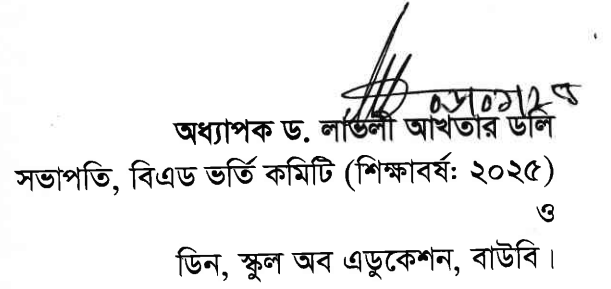 অধ্যাপক ড. লাভলী আখতার ডলি
সভাপতি, বিএড ভর্তি কমিটি (শিক্ষাবর্ষ: ২০২৫)
ও
ডিন, স্কুল অব এডুকেশন, বাউবি।